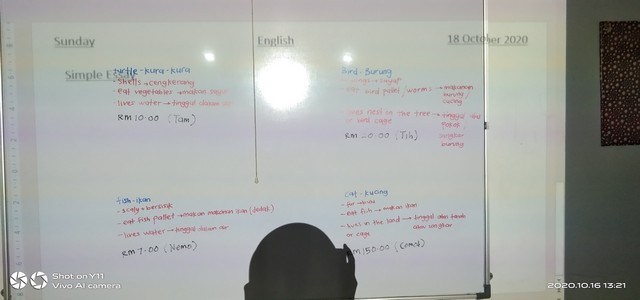 Sunday
English
18 October 2020
Simple Essay
turtle - kura-kura
- shells → cengkerang
- eat vegetables → makan sayur
- lives water → tinggal dalam air
RM 10.00 (Tam)
Bird - Burung
→ makanan
lives nest on the tree → tinggal
RM 20.00 (Tih)
fish - ikan
- scaly → bersisik
- eat fish pallet → makan makanan ikan
- lives water → tinggal dalam air
RM 7.00 (Nemo)
cat - kucing
- fur → bulu
- eat fish → makan ikan
- lives on the land → tinggal atas tanah
or cage
atau sangkar
RM 150.00 (Comot)
Shot on Y11
Vivo AI camera
2020.10.16 13:21